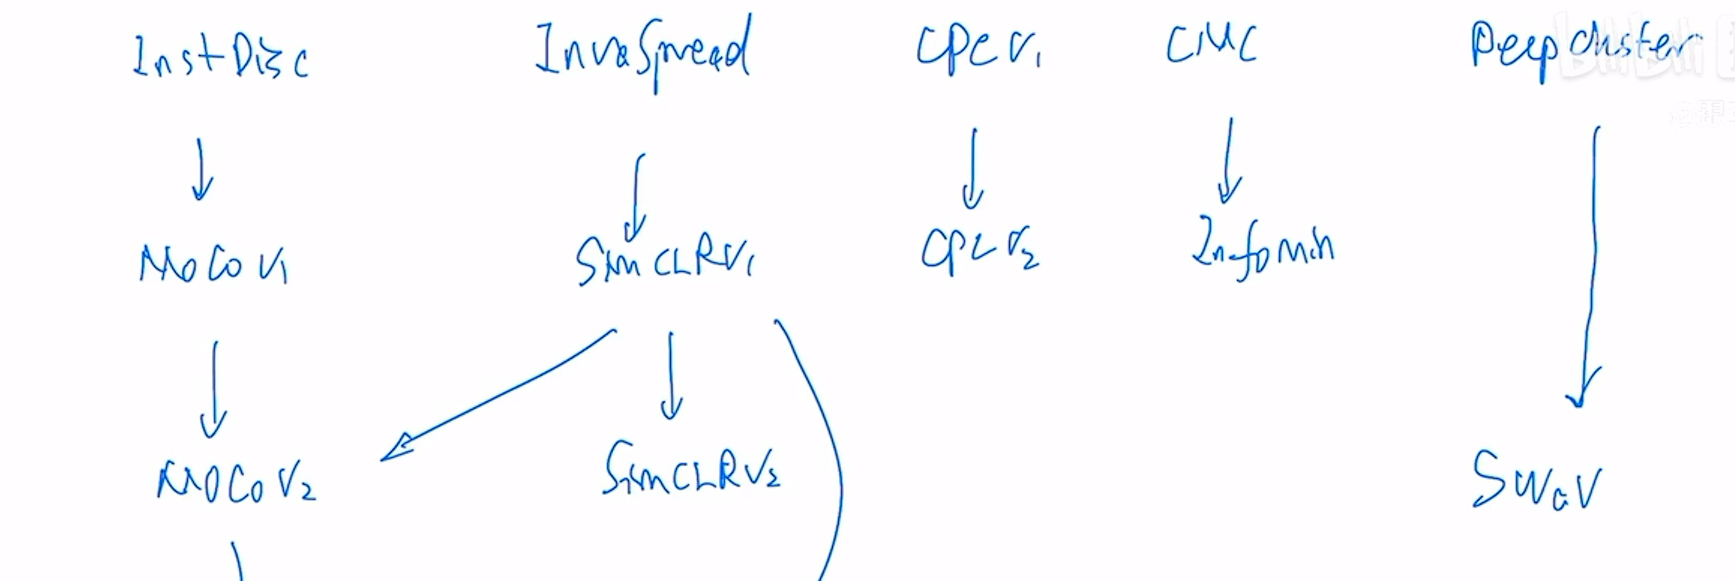 InstDisc InvaSpread CPC V1 CMC Deepcluster
bilibili
MoCo V1 SimCLR V1 CPC V2 Infomin
MoCo V2 SimCLR V2 SwaV